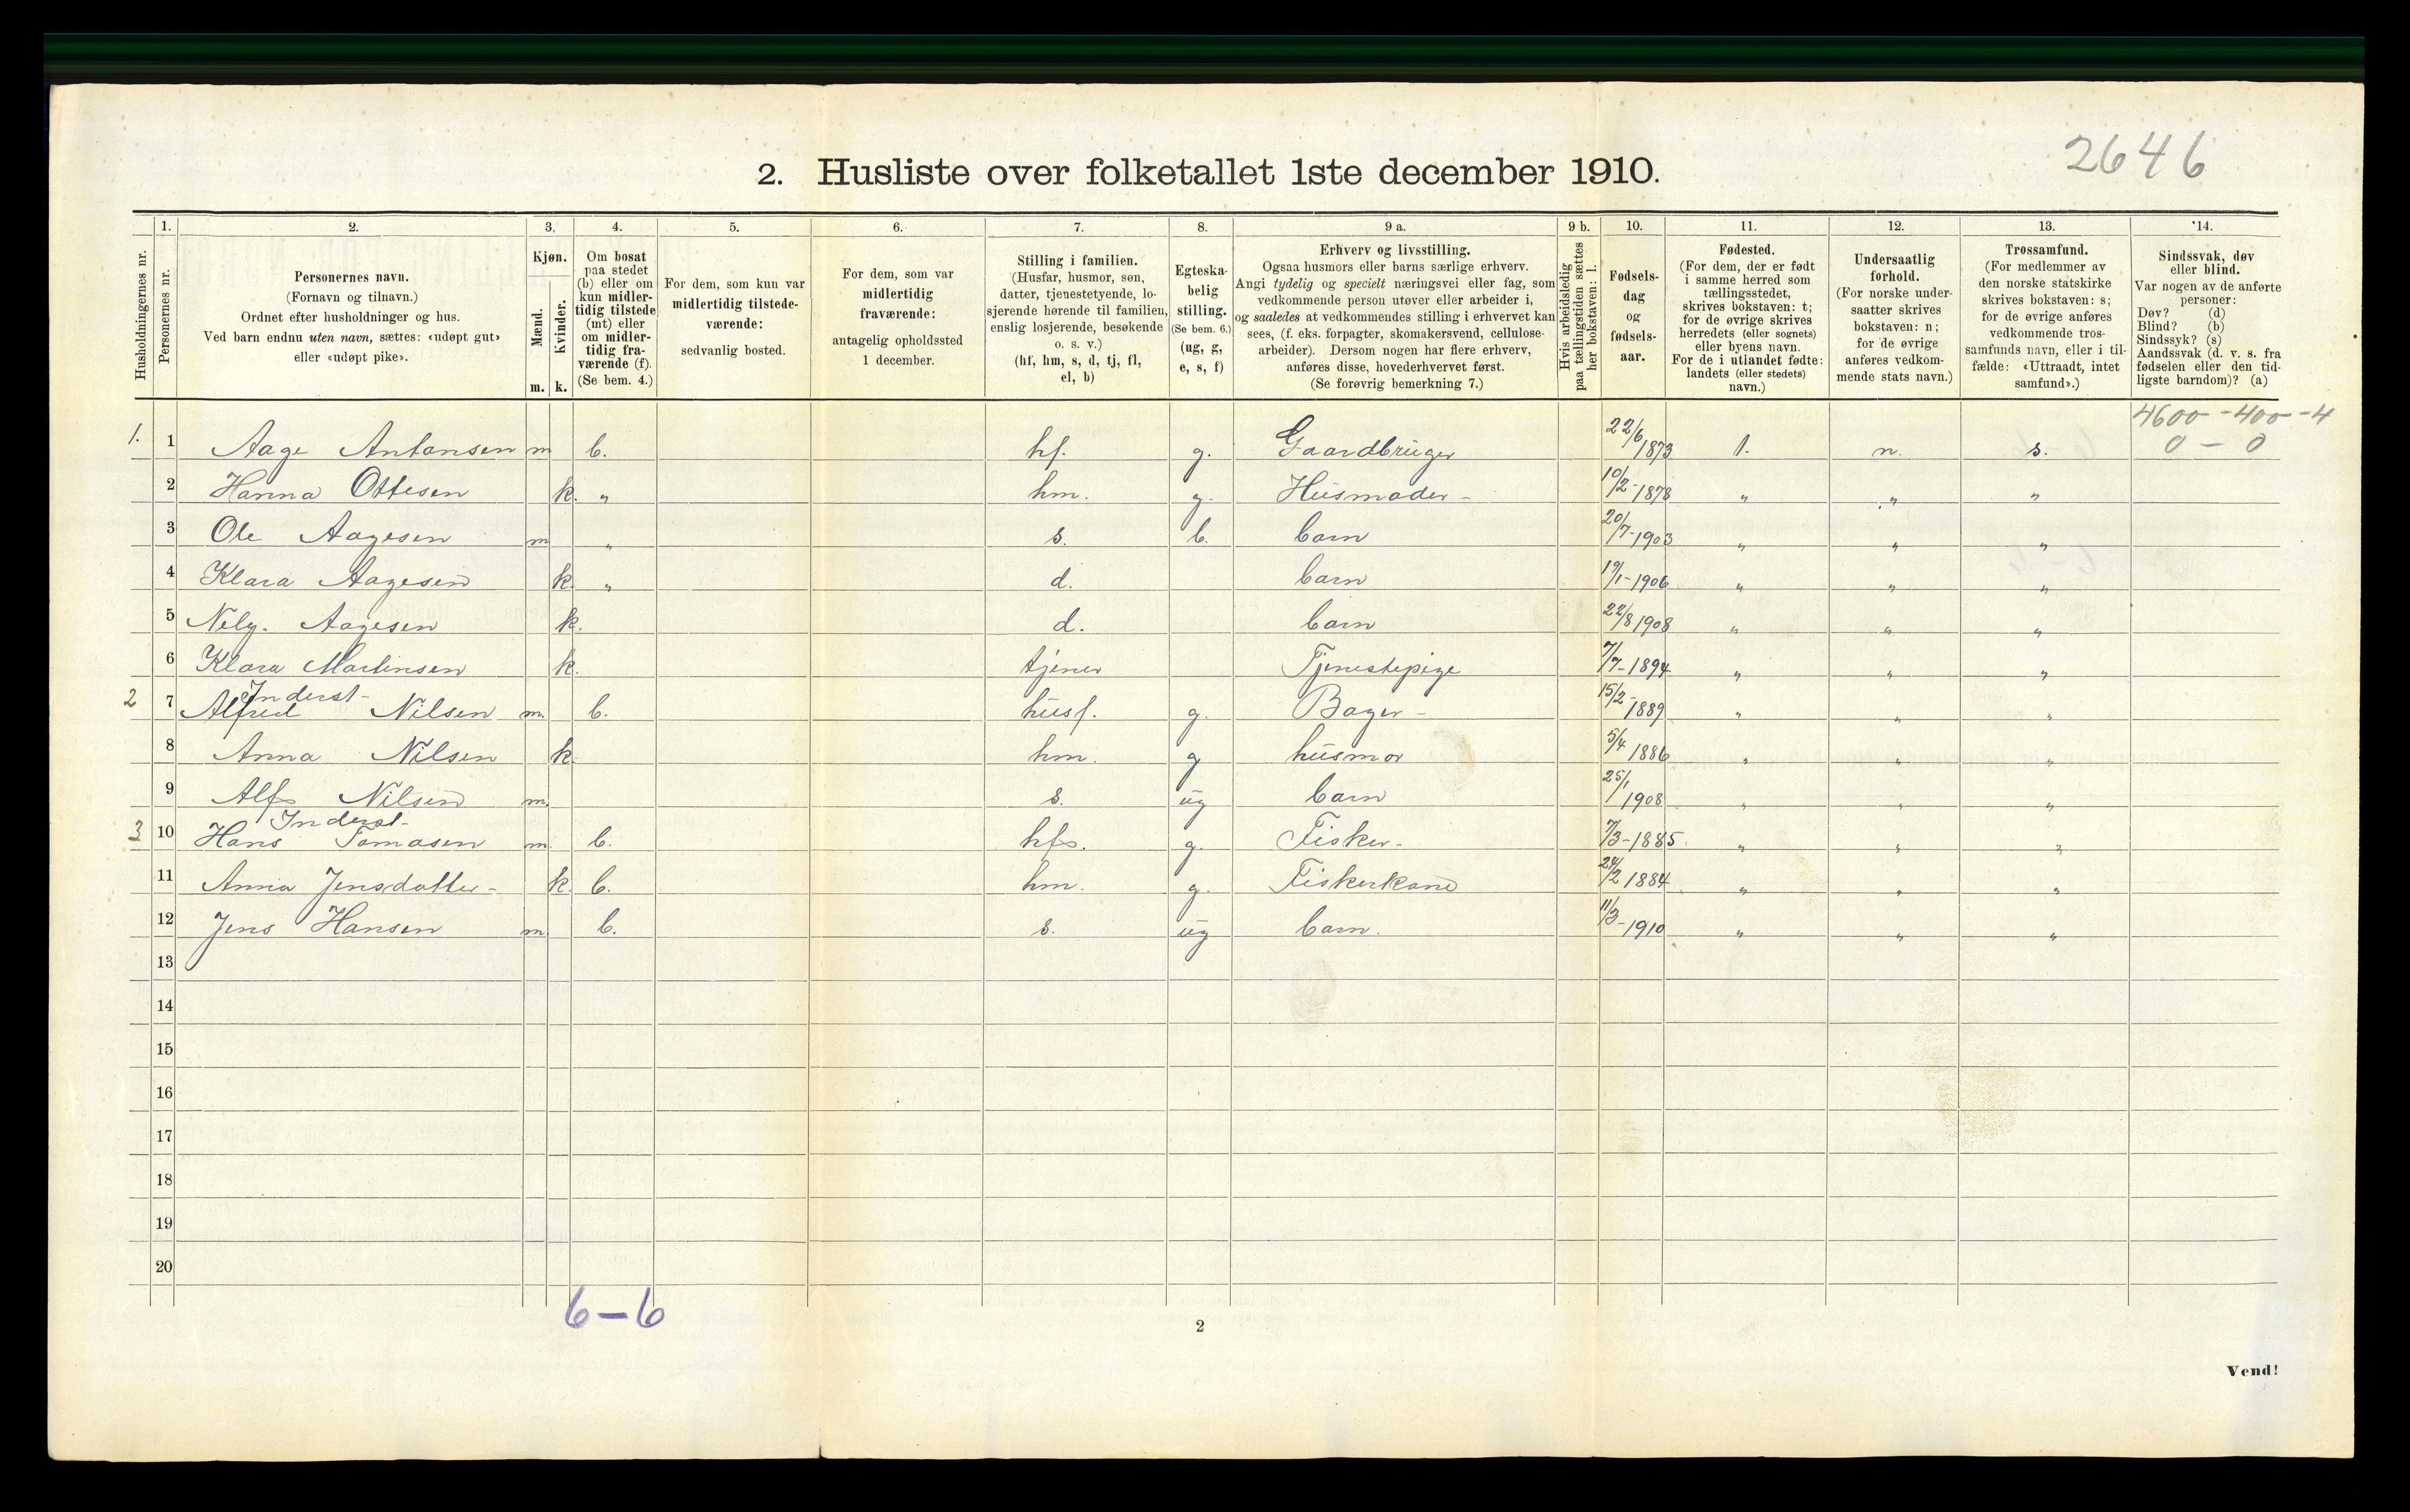 2646
2. Husliste over folketallet 1ste december 1910.
Husholdningernes nr.
1. Personernes nr.
2. Personernes navn. (Fornavn og tilnavn.) Ordnet efter husholdninger og hus. Ved barn endnu uten navn, sættes: «udøpt gut» eller «udøpt pike».
3. Kjøn. Mænd. m. Kvinder. k.
4. Om bosat paa stedet (b) eller om kun midlertidig tilstede (mt) eller om midlertidig fraværende (f). (Se bem. 4.)
5. For dem, som kun var midlertidig tilstedeværende: sedvanlig bosted.
6. For dem, som var midlertidig fraværende: antagelig opholdssted 1 december.
7. Stilling i familien. (Husfar, husmor, søn, datter, tjenestetyende, losjerende hørende til familien, enslig losjerende, besøkende o. s. v.) (hf, hm, s, d, tj, fl, el, b)
8. Egteskabelig stilling. (Se bem. 6.) (ug, g, e, s, f)
9 a. Erhverv og livsstilling. Ogsaa husmors eller barns særlige erhverv. Angi tydelig og specielt næringsvei eller fag, som vedkommende person utøver eller arbeider i, og saaledes at vedkommendes stilling i erhvervet kan sees, (f. eks. forpagter, skomakersvend, cellulosearbeider). Dersom nogen har flere erhverv, anføres disse, hovederhvervet først. (Se forøvrig bemerkning 7.)
9 b. Hvis arbeidsledig paa tællingstiden sættes her bokstaven: l.
10. Fødselsdag og fødselsaar.
11. Fødested. (For dem, der er født i samme herred som tællingsstedet, skrives bokstaven: t; for de øvrige skrives herredets (eller sognets) eller byens navn. For de i utlandet fødte: landets (eller stedets) navn.)
12. Undersaatlig forhold. (For norske undersaatter skrives bokstaven: n; for de øvrige anføres vedkommende stats navn.)
13. Trossamfund. (For medlemmer av den norske statskirke skrives bokstaven: s; for de øvrige anføres vedkommende trossamfunds navn, eller i tilfælde: «Uttraadt, intet samfund».)
14. Sindssvak, døv eller blind. Var nogen av de anførte personer: Døv? (d) Blind? (b) Sindssyk? (s) Aandssvak (d. v. s. fra fødselen eller den tidligste barndom)? (a)
4600-400-4
1. 1 Aage Antonsen m b. hf. g. Gaardbruger 22/6 1873 t. n. s. 0 - 0
2 Hanna Ottesen k. „ hm. g. Husmoder - 10/2-1878 „ „ „
3 Ole Aagesen m „ s. b. barn 20/7-1903 „ „ „
4 Klara Aagesen k. „ d. barn 19/1-1906 „ „ „
5 Nely. Aagesen k. d. barn 22/8 1908 „ „ „
6 Klara Martinsen k. tjener Tjenestepige 7/7-1894 „ „ „
Inderst-
2 7 Alfred Nilsen m. b. husf. g. Bager - 15/2-1889 „ „ „
8 Anna Nilsen k. hm. g husmor 5/4 1886 „ „ „
9 Alf Nilsen m. s. ug barn 25/1 1908 „ „ „
Inderst-
3 10 Hans Tomasen m. b. hf. g. Fisker - 7/3-1885 „ „ „
11 Anna Jensdatter - k. b. hm. g. Fiskerkone 24/2 1884 „ „ „
12 Jens Hansen m b. s. ug barn. 11/3-1910 „ „ „
13
14
15
16
17
18
19
20
6-6
2
Vend!